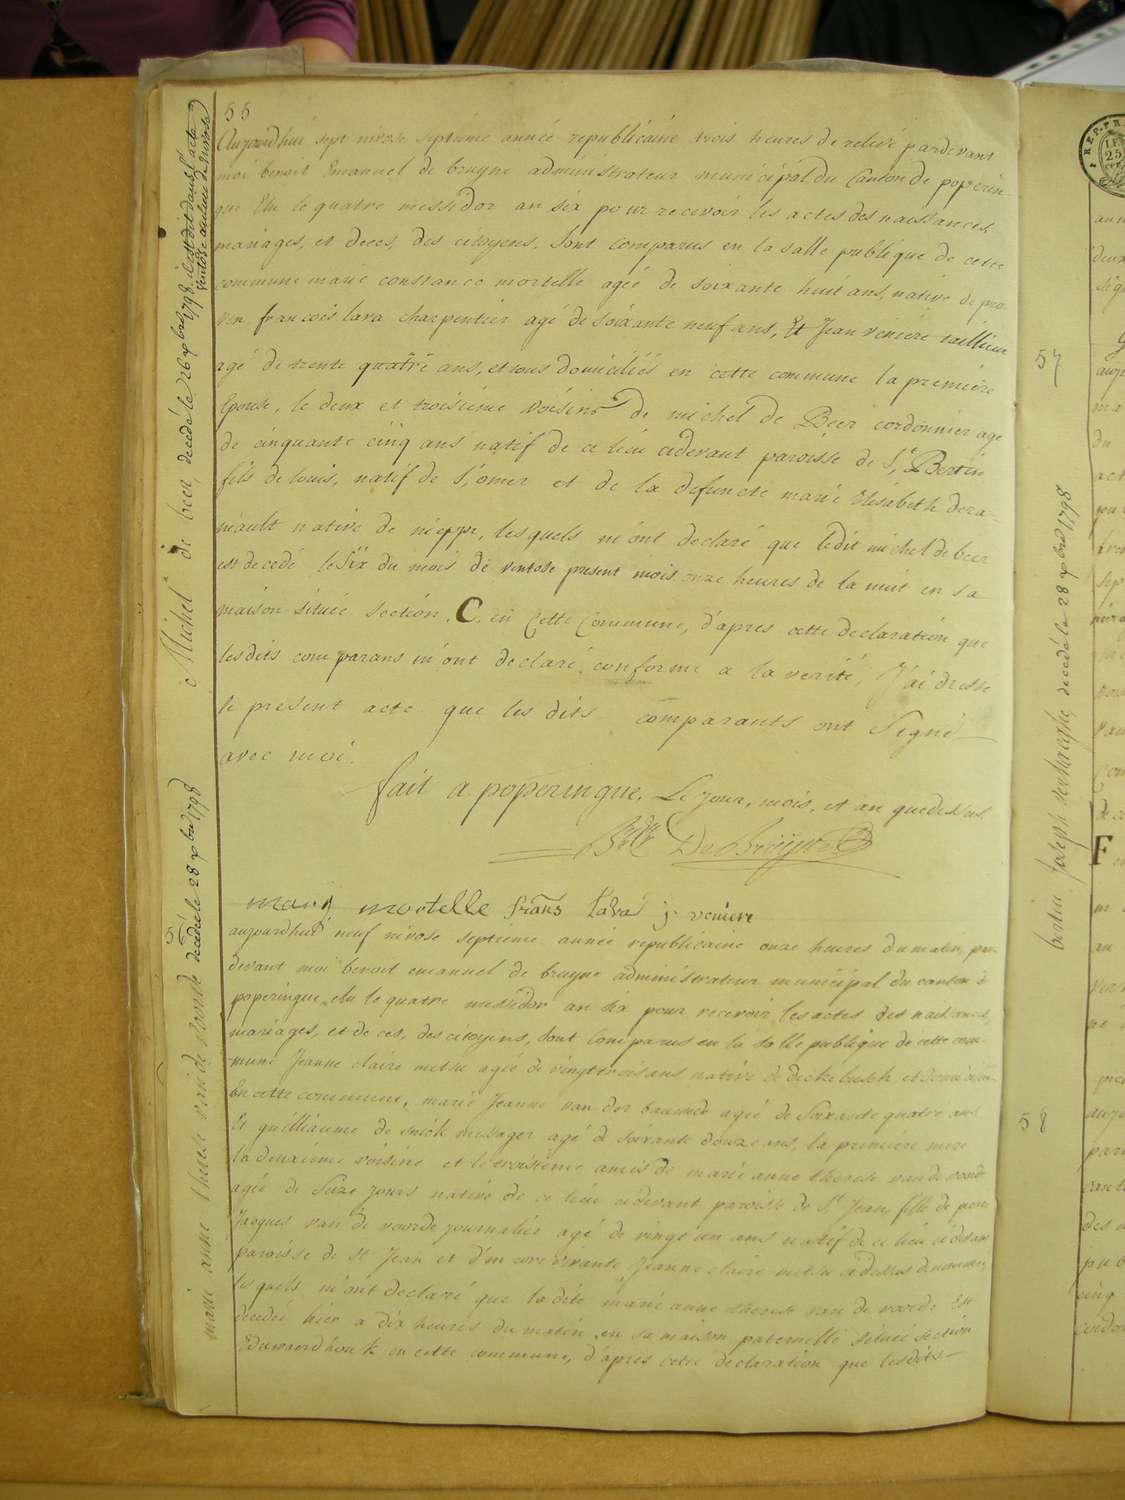 55
Aujourdhui sept nivose septieme année republicaine trois heures de relevé pardevant
moi benoit Emanuel de bruyne administrateur municipal du Canton de poperin-
gue Elu le quatre messidor an six pour recevoir les actes des naissances,
mariages, et deces, des citoyens. Sont comparus en la salle publique de cette
commune marie constance mortelle agée de soixante huit ans, native de pro-
ven francois lava charpentier agé de soixante neuf ans, Et Jean veniere tailleur
agé de trente quattre ans, et tous domiciliés en cette commune la premiére
Epouse, le deux et troisieme voisins de michel de Beer cordonnier age
de cinquante cinq ans natif de ce lieu cidevant paroisse de St Bertin
fils de louis, natif de St omer et de la defuncte marie Elisabeth dera-
meault native de nieppe, lesquels m'ont declaré que ledit michel de beer
est decedé le Six du mois de ventose present mois onze heures de la nuit en sa
maison située section. C. en Cette Commune, d'apres cette declaration que
lesdits comparans m'ont declaré conforme a la verité, J'ai dressé
le present acte que les dits comparants ont Signé
avec moi.
fait a poperingue. Le jour, mois, et an quedessus.
De Bruyne
marij mortelle frans Lava j. veniere
aujourdhui neuf nivose septieme année republicaine onze heures du matin, par
devant moi benoit emanuel de bruyne administrateur municipal du canton de
poperingue elu le quatre messidor an six pour recevoir les actes des naissances,
mariages, et de ces, des citoyens, sont Comparus en la salle publique de cette com-
mune Jeanne claire metsu agée de vingt trois ans native de dickebusch et domiciliée
En cette commune, marie Jeanne van der bauwede agée de Soixante quatre ans
Et guilliaume de snick messager agé de soixante douze ans, la premiere mere
la deuxieme voisine et le troisieme amis de marie anne therese van de voorde
agée de Seize jours native de ce lieu cidevant paroisse de St Jean, fille de pierre
Jacques van de voorde journalier agé de vingt un ans natif de ce lieu cidevant
paroisse de st Jean et d'encore vivante Jeanne claire metsu ci dessus denommée,
lesquels m'ont declaré que la dite marie anne therese van de voorde Est
decedée hier a dix heures du matin en sa maison paternelle située section
Eduwaerdhouk en cette commune, d'apres cette declaration que lesdits
Michel de beer, decedé le 26 xbre 1798. il est dit dans l'acte
ventose aulieu de nivose
marie anne therese van de voorde decedée le 28 xbre 1798
57
bertin Joseph verhaeghe decedé le 28 xbre 1798
58